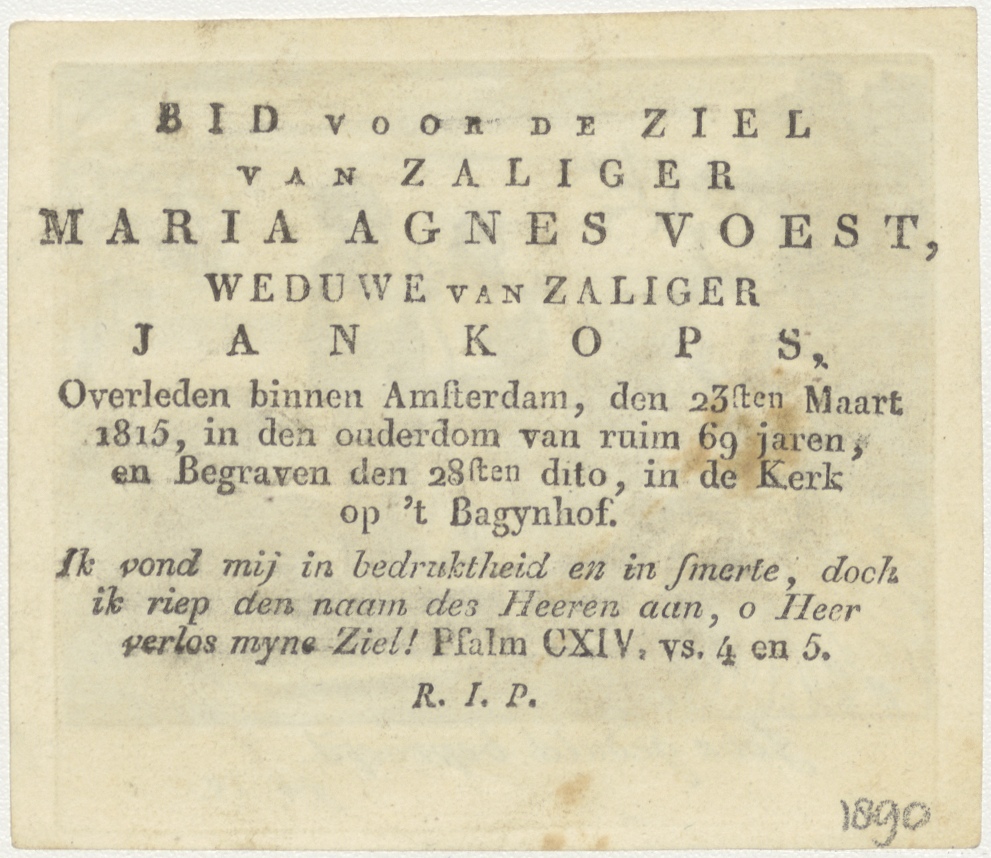 BID VOOR DE ZIEL
VAN ZALIGER
MARIA AGNES VOEST,
WEDUWE VAN ZALIGER
JAN KOPS,
Overleden binnen Amſterdam, den 23ſten Maart
1815, in den ouderdom van ruim 69 jaren,
en Begraven den 28ſten dito, in de Kerk
op 't Bagynhof.
Ik vond mij in bedruktheid en in ſmerte, doch
ik riep den naam des Heeren aan, o Heer
verlos myne Ziel! Pſalm CXIV. vs. 4 en 5.
R. I. P.
1890